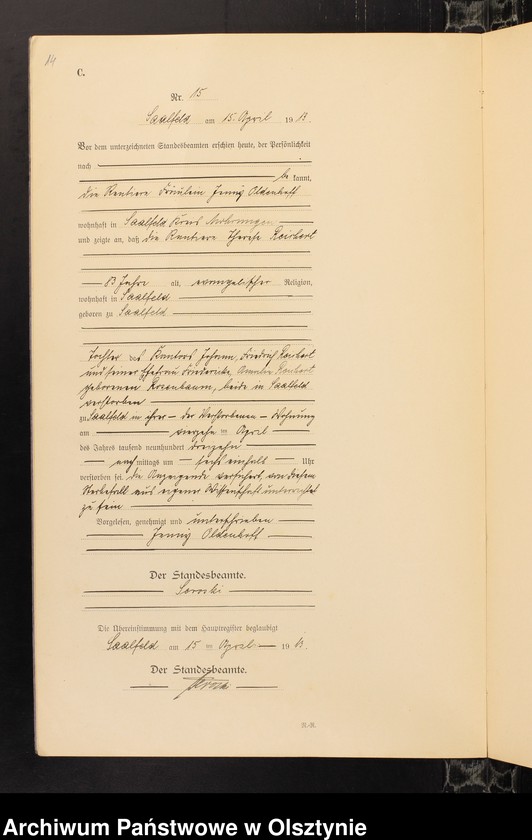 14
C.
Nr. 15
Saalfeld am 15. April 1913.
Vor dem unterzeichneten Standesbeamten erschien heute, der Persönlichkeit
nach
be kannt,
die Rentiere Fräulein Jenny Oldenhoff
wohnhaft in Saalfeld Kreis Mohrungen
und zeigte an, daß die Rentiere Therese Reichert
83 Jahre alt, evangelischer Religion,
wohnhaft in Saalfeld
geboren zu Saalfeld
Tochter des Kantors Johann Friedrich Reichert
und seiner Ehefrau Friederike, Reichert
geborenen Rosenbaum, beide in Saalfeld
verstorben
zu Saalfeld in ihrer - der Verstorbenen - Wohnung
am vierzehn ten April
des Jahres tausend neunhundert dreizehn
nach mittags um sechs einhalb Uhr
verstorben sei. Die Anzeigende versichert, von diesem
Sterbefall aus eigener Wissenschaft unterrichtet
zu sein
Vorgelesen, genehmigt und unterschrieben
Jenny Oldenhoff
Der Standesbeamte.
Die Übereinstimmung mit dem Hauptregister beglaubigt
Saalfeld am 15 ten April 1913.
Der Standesbeamte.
Archiwum Państwowe w Olsztynie